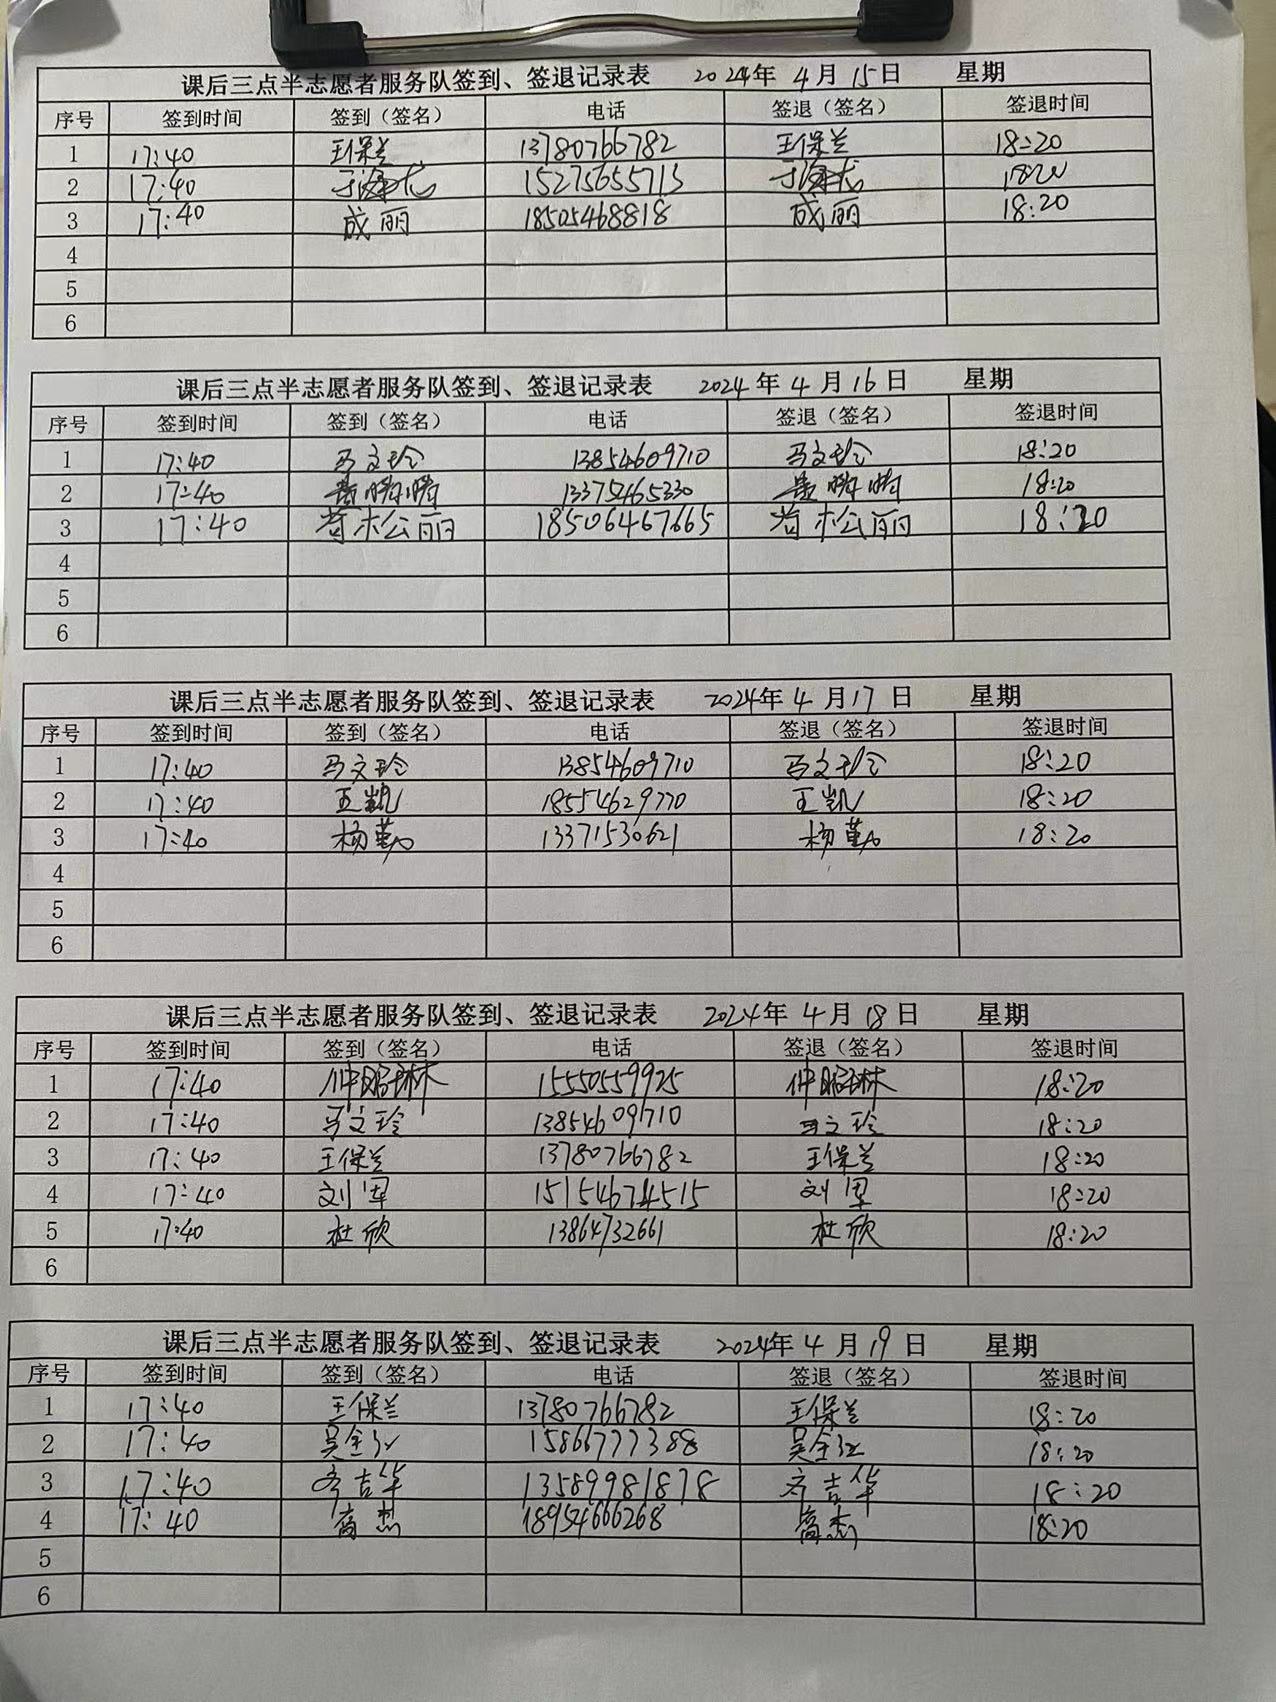 课后三点半志愿者服务队签到、签退记录表 2024年 4月 15日 星期
序号 签到时间 签到（签名） 电话 签退（签名） 签退时间
1 17:40 王保兰 13780766782 王保兰 18:20
2 17:40 15275655715 1820
3 17:40 成丽 18505468818 成丽 18:20
4
5
6
课后三点半志愿者服务队签到、签退记录表 2024年 4月 16日 星期
序号 签到时间 签到（签名） 电话 签退（签名） 签退时间
1 17:40 马文玲 13854609710 马文玲 18:20
2 17:40 13375465330 18:20
3 17:40 苟松丽 18506467665 苟松丽 18:20
4
5
6
课后三点半志愿者服务队签到、签退记录表 2024年 4月 17日 星期
序号 签到时间 签到（签名） 电话 签退（签名） 签退时间
1 17:40 马文玲 13854609710 马文玲 18:20
2 17:40 王凯 18554629770 王凯 18:20
3 17:40 杨勤 13371530621 杨勤 18:20
4
5
6
课后三点半志愿者服务队签到、签退记录表 2024年 4月 18日 星期
序号 签到时间 签到（签名） 电话 签退（签名） 签退时间
1 17:40 仲昭琳 15550559925 仲昭琳 18:20
2 17:40 马文玲 13854609710 马文玲 18:20
3 17:40 王保兰 13780766782 王保兰 18:20
4 17:40 刘军 15154674515 刘军 18:20
5 17:40 杜欣 13864732661 杜欣 18:20
6
课后三点半志愿者服务队签到、签退记录表 2024年 4月 19日 星期
序号 签到时间 签到（签名） 电话 签退（签名） 签退时间
1 17:40 王保兰 13780766782 王保兰 18:20
2 17:40 吴全江 15866777388 吴全江 18:20
3 17:40 齐吉华 13589981878 齐吉华 18:20
4 17:40 高杰 18954666268 高杰 18:20
5
6